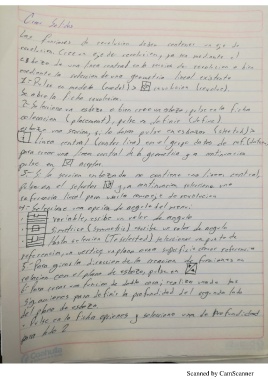 Crear Solidos
Las funciones de revolucion deben contener un eje de
revolucion. Cree un eje de revolucion, ya sea mediante el
esbozo de una linea central en la seccion de revolucion o bien
mediante la seleccion de una geometria lineal existente
1- Pulse en modelo (model) > revolucion (revolve).
Se abre la ficha revolucion.
2- Seleccione un esbozo o bien cree un esbozo, pulse en la ficha
colocacion (placement), pulse en definir (define)
esboze una seccion, o, la linea, pulse en esbozar (sketch) >
linea central (center line) en el grupo datos de ref (datum)
para crear una linea central de la geometria y a continuacion
pulse en aceptar
3- Si la seccion esbozada no contiene una linea central,
pulse en el selector y a continuacion seleccione una
referencia lineal para usarla como eje de revolucion
4- Seleccione una opcion de angulo del panel:
variable, escribe un valor de angulo
Simetrico (symmetric) escribe un valor de angulo
Hasta seleccion (To selected) seleccione un punto de
referencia, un vertice, un plano o una superficie como referencia
5- Para girar la direccion de la creacion de funciones en
relacion con el plano de esbozo, pulse en
6- Para crear una funcion de doble cara, realice una de las
siguientes para definir la profundidad del segundo lado
del plano de esbozo.
- Pulse en la ficha opciones y seleccione una de profundidad
para lado 2
Scanned by CamScanner